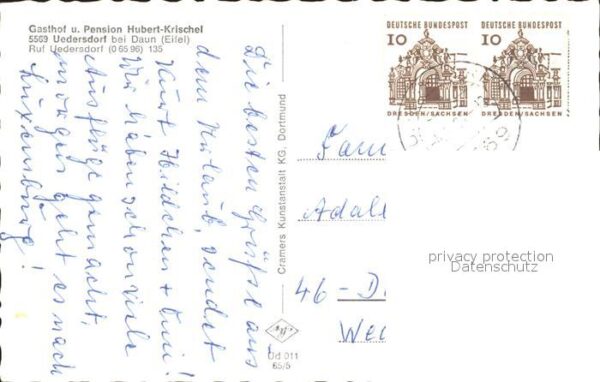 Gasthof u. Pension Hubert-Krischel
5569 Uedersdorf bei Daun (Eifel)
Ruf Uedersdorf (0 65 96) 135
Die besten Grüße aus
dem Urlaub, sendet
Tante Hildchen +
Wir haben schon viele
Ausflüge gemacht,
morgen geht es nach
Luxemburg!
Cramers Kunstanstalt KG, Dortmund
Ud 011
65/5
DEUTSCHE BUNDESPOST
10
DRESDEN/SACHSEN
DEUTSCHE BUNDESPOST
10
DRESDEN/SACHSEN
Fam
Adal
46-D
We
privacy protection
Datenschutz